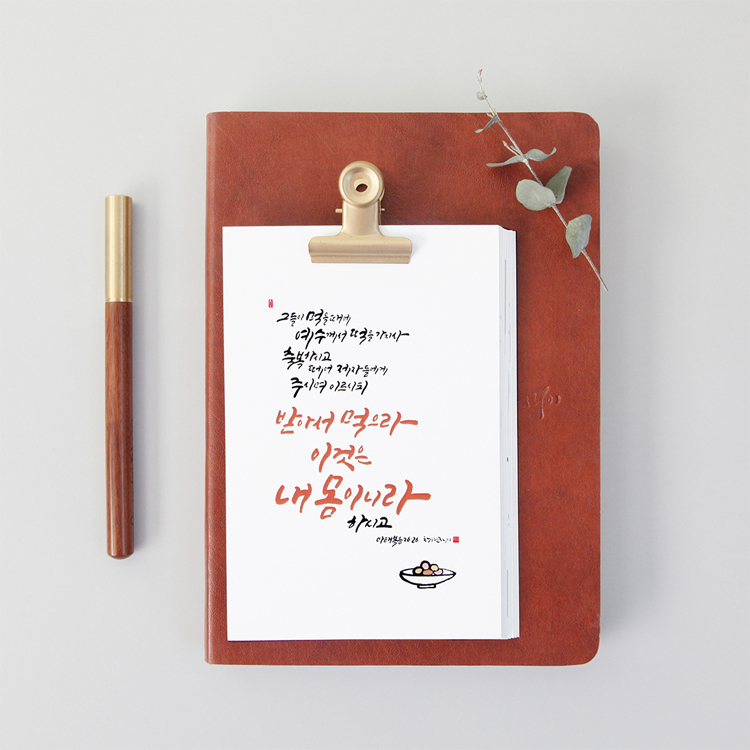 그들이 먹을 때에
예수께서 떡을 가지사
축복하시고
떼어 제자들에게
주시며 이르시되
받아서 먹으라
이것은
내 몸이니라
하시고
마태복음 26:26